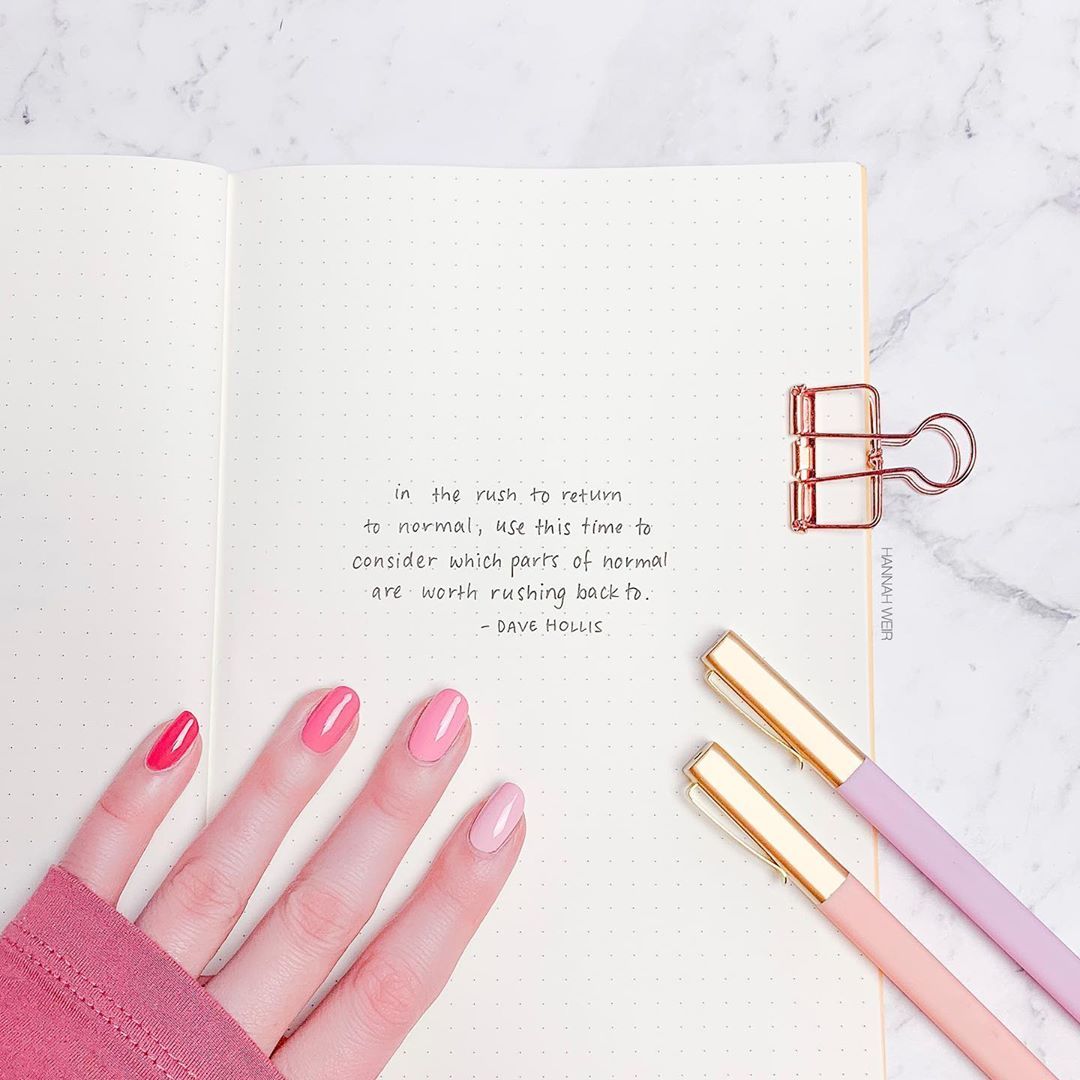 in the rush to return
to normal, use this time to
consider which parts of normal
are worth rushing back to.
- DAVE HOLLIS
HANNAH WEIR